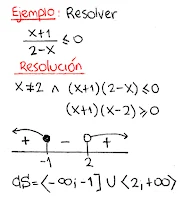 Ejemplo: Resolver
x+1
2-x ≤ 0
Resolución
x≠2 ∧ (x+1)(2-x) ≤ 0
(x+1)(x-2) ≥ 0
+ - +
-1 2
CS=⟨-∞;-1] U ⟨2;+∞⟩